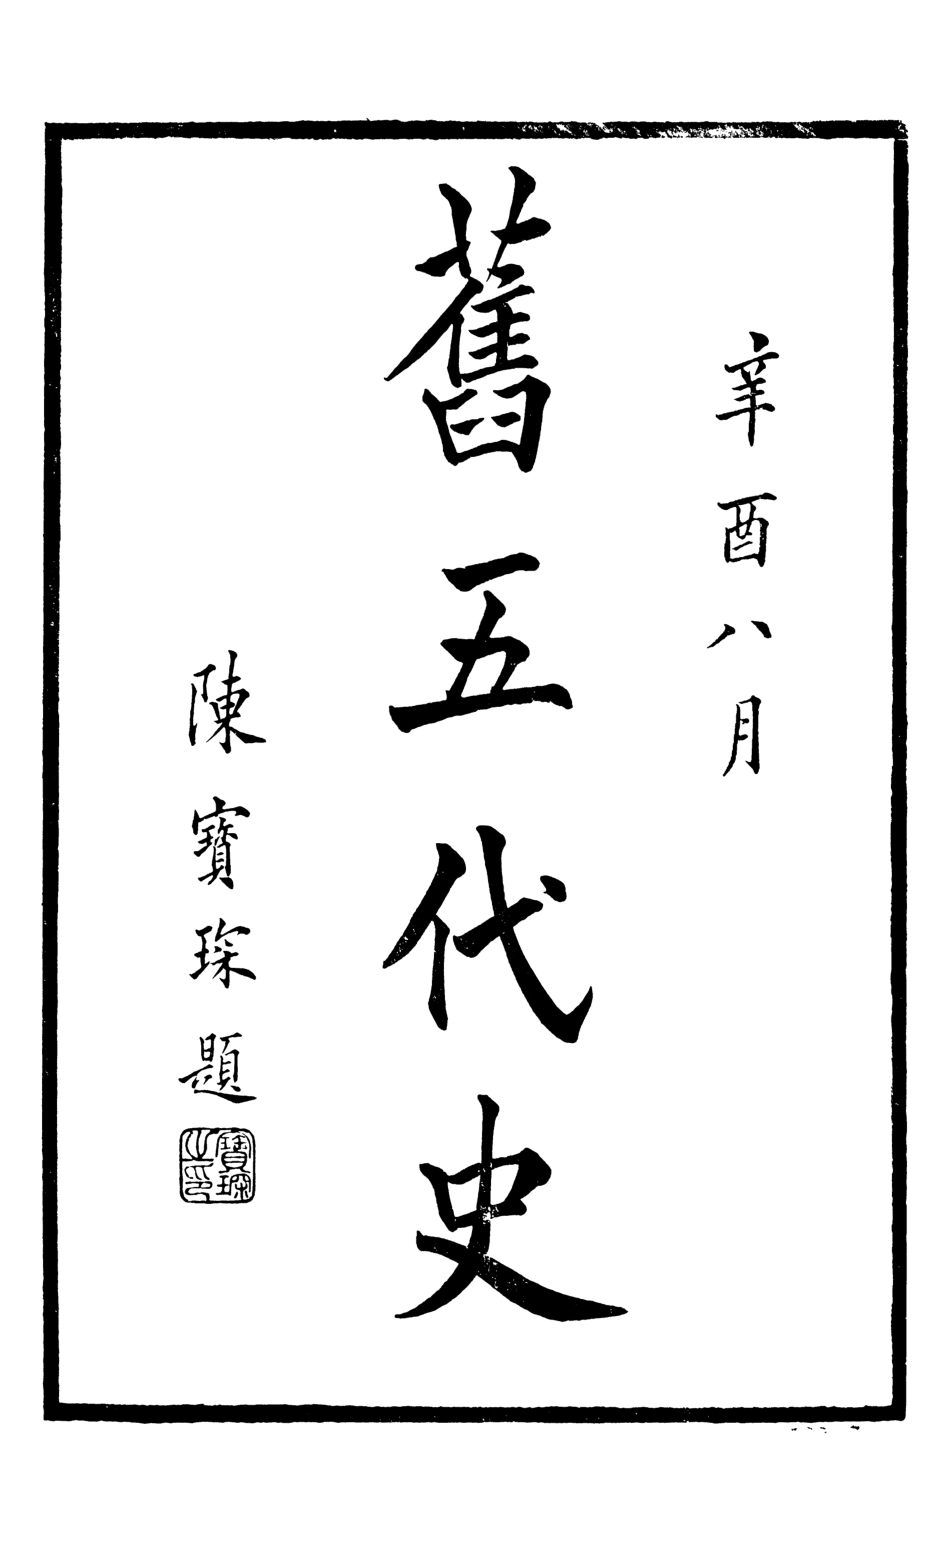 辛酉八月
舊五代史
陳寶琛題
寶琛之印